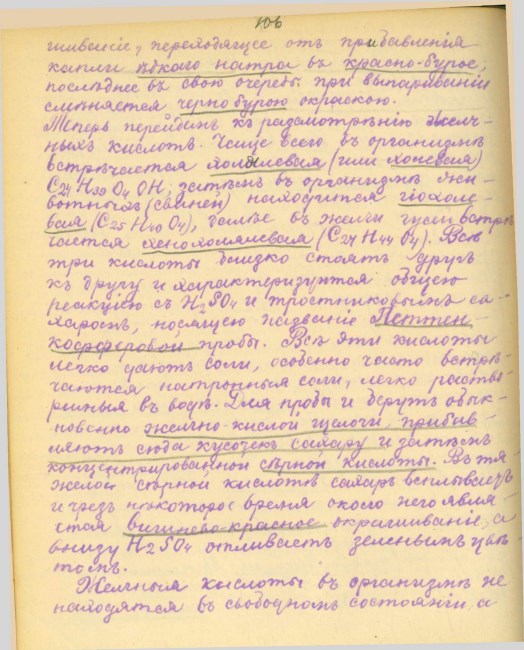 106
шиваніе, переходящее отъ прибавленія
капли ѣдкаго натра въ красно-бурое,
послѣднее въ свою очередь при выпариваніи
смѣняется чернобурою окраскою.
Теперь перейдемъ къ разсмотрѣнію желч-
ныхъ кислотъ. Чаще всего въ организмѣ
встрѣчается холалевая (или холевая)
C24 H39 O4 OH; затѣмъ въ организмѣ жи-
вотныхъ (свиней) находится гіохоле-
вая (C25 H40 O4), далѣе въ желчи гуся встрѣ-
чается хенохолалевая (C27 H44 O4). Всѣ
три кислоты близко стоятъ другъ
къ другу и характеризуются общею
реакціею съ H2SO4 и тростниковымъ са-
харомъ, носящею названіе Петтен-
коферовой пробы. Всѣ эти кислоты
легко даютъ соли, особенно часто встрѣ-
чаются натронныя соли, легко раство-
римыя въ водѣ. Для пробы и берутъ обык-
новенно желчно-кислой щелочи, прибав-
ляютъ сюда кусочекъ сахару и затѣмъ
концентрированной сѣрной кислоты. Въ тя-
желой сѣрной кислотѣ сахаръ всплываетъ
и чрезъ некоторое время около него явля-
ется вишнево-красное окрашиваніе, а
внизу H2SO4 отливаетъ зеленымъ цвѣ-
томъ.
Желчныя кислоты въ организмѣ не
находятся въ свободномъ состояніи, а